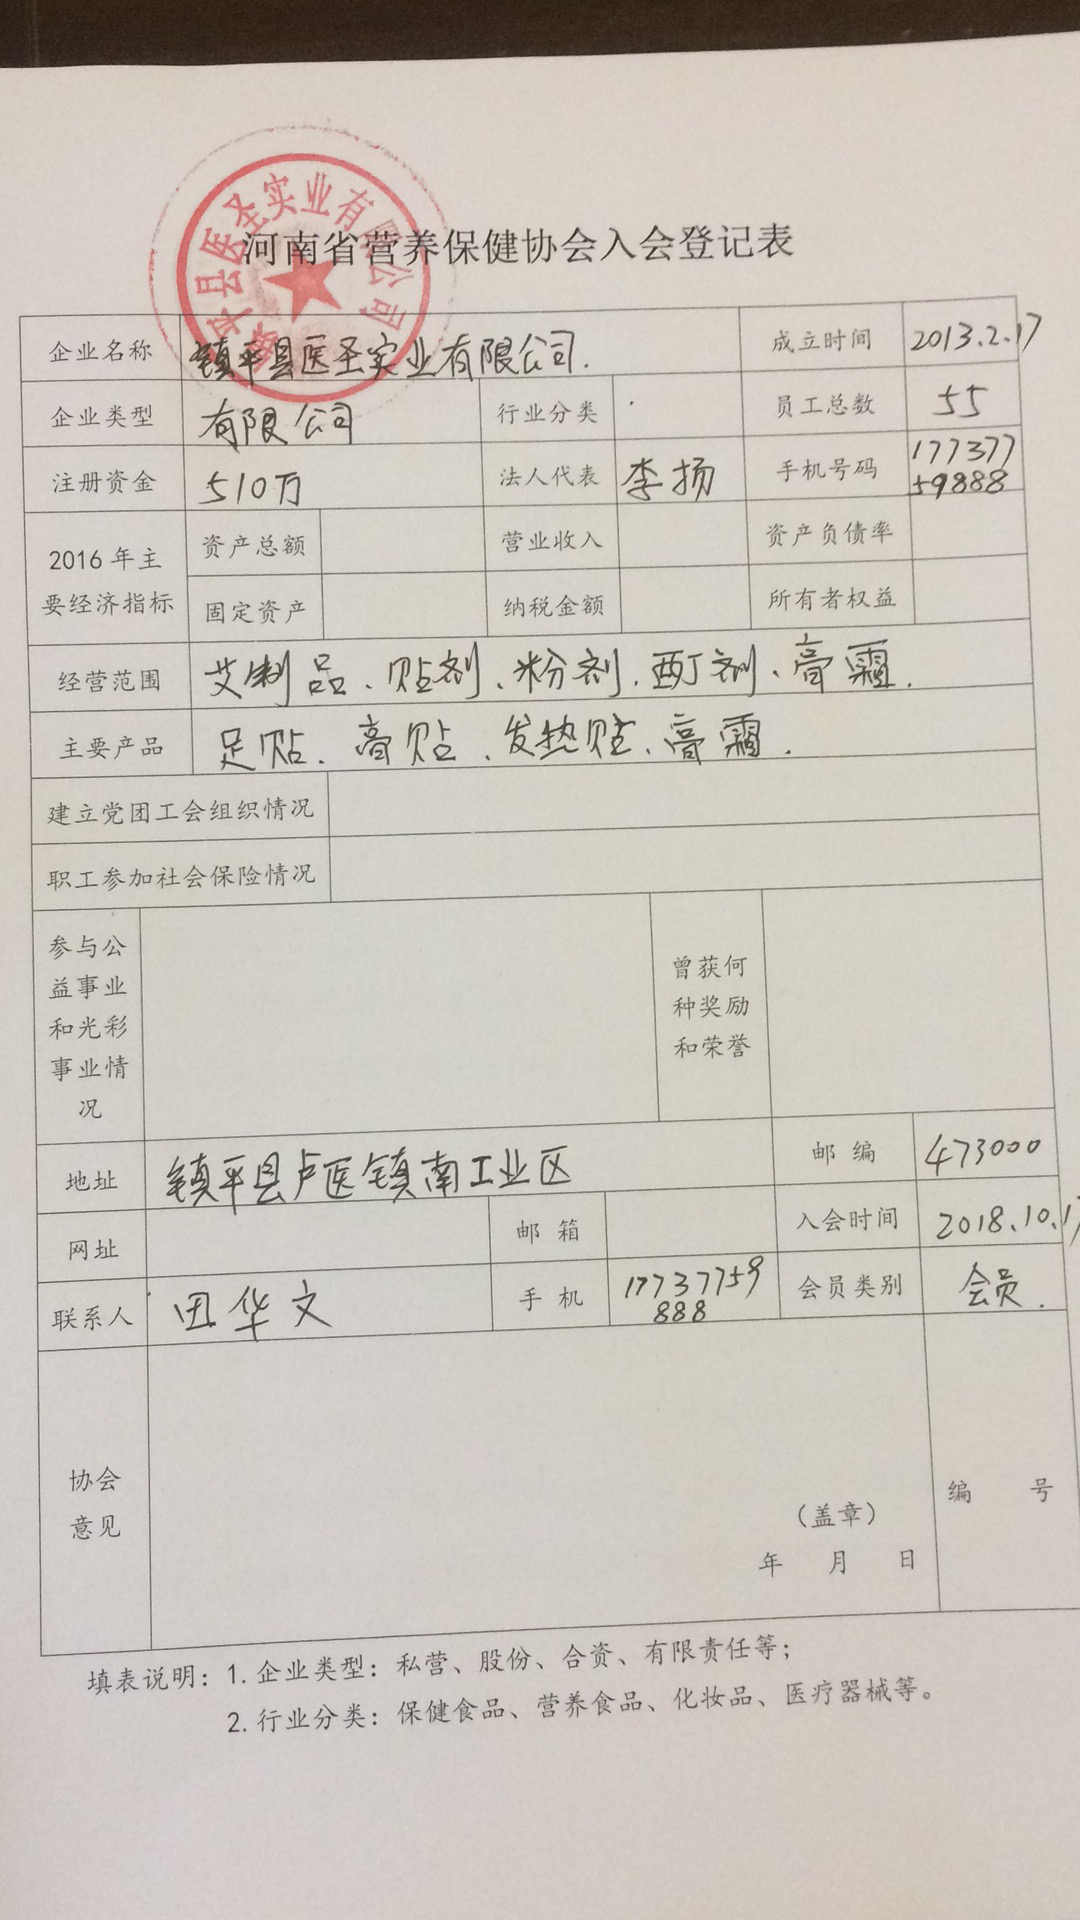 河南省营养保健协会入会登记表
镇平县医圣实业有限公司
企业名称 镇平县医圣实业有限公司. 成立时间 2013.2.17
企业类型 有限公司 行业分类 员工总数 55
注册资金 510万 法人代表 李扬 手机号码 177377
59888
2016年主
要经济指标
资产总额 营业收入 资产负债率
固定资产 纳税金额 所有者权益
经营范围 艾制品、贴剂、粉剂、酊剂、膏霜.
主要产品 足贴、膏贴、发热贴、膏霜.
建立党团工会组织情况
职工参加社会保险情况
参与公
益事业
和光彩
事业情
况
曾获何
种奖励
和荣誉
地址 镇平县卢医镇南工业区 邮 编 473000
网址 邮 箱 入会时间 2018.10.17
联系人 田华文 手 机 17737759
888
会员类别 会员.
协会
意见
(盖章)
年 月 日
编 号
填表说明：1.企业类型：私营、股份、合资、有限责任等；
2.行业分类：保健食品、营养食品、化妆品、医疗器械等。